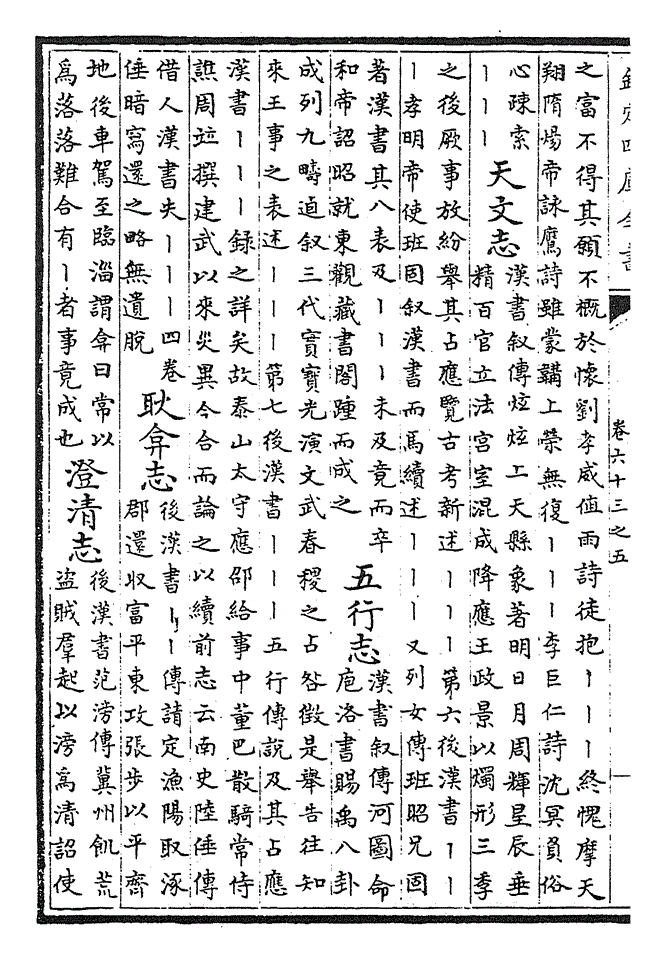 欽定四庫全書
卷六十三之五
之富不得其願不概於懷劉孝威值雨詩徒抱丨丨丨終愧摩天
翔隋煬帝詠鷹詩雖蒙韝上榮無復丨丨丨李巨仁詩沈冥負俗
心疎索
丨丨丨
天文志
漢書叙傳炫炫上天縣象著明日月周輝星辰垂
精百官立法宫室混成降應王政景以燭形三季
之後厥事放紛舉其占應覽古考新述丨丨丨第六後漢書丨丨
丨孝明帝使班固叙漢書而馬續述丨丨丨又列女傳班昭兄固
著漢書其八表及丨丨丨未及竟而卒
和帝詔昭就東觀藏書閣踵而成之
五行志
漢書叙傳河圖命
庖洛書賜禹八卦
成列九疇逌叙三代實寶光演文武春稷之占咎徵是舉告往知
來王事之表述丨丨丨第七後漢書丨丨丨五行傳說及其占應
漢書丨丨丨録之詳矣故泰山太守應邵給事中董巴散騎常侍
譙周竝撰建武以來災異今合而論之以續前志云南史陸倕傳
借人漢書失丨丨丨四卷
倕暗寫還之略無遺脱
耿弇志
後漢書丨丨傳請定漁陽取涿
郡還收富平東攻張步以平齊
地後車駕至臨淄謂弇曰常以
爲落落難合有丨者事竟成也
澄清志
後漢書范滂傳冀州飢荒
盗賊羣起以滂爲清詔使